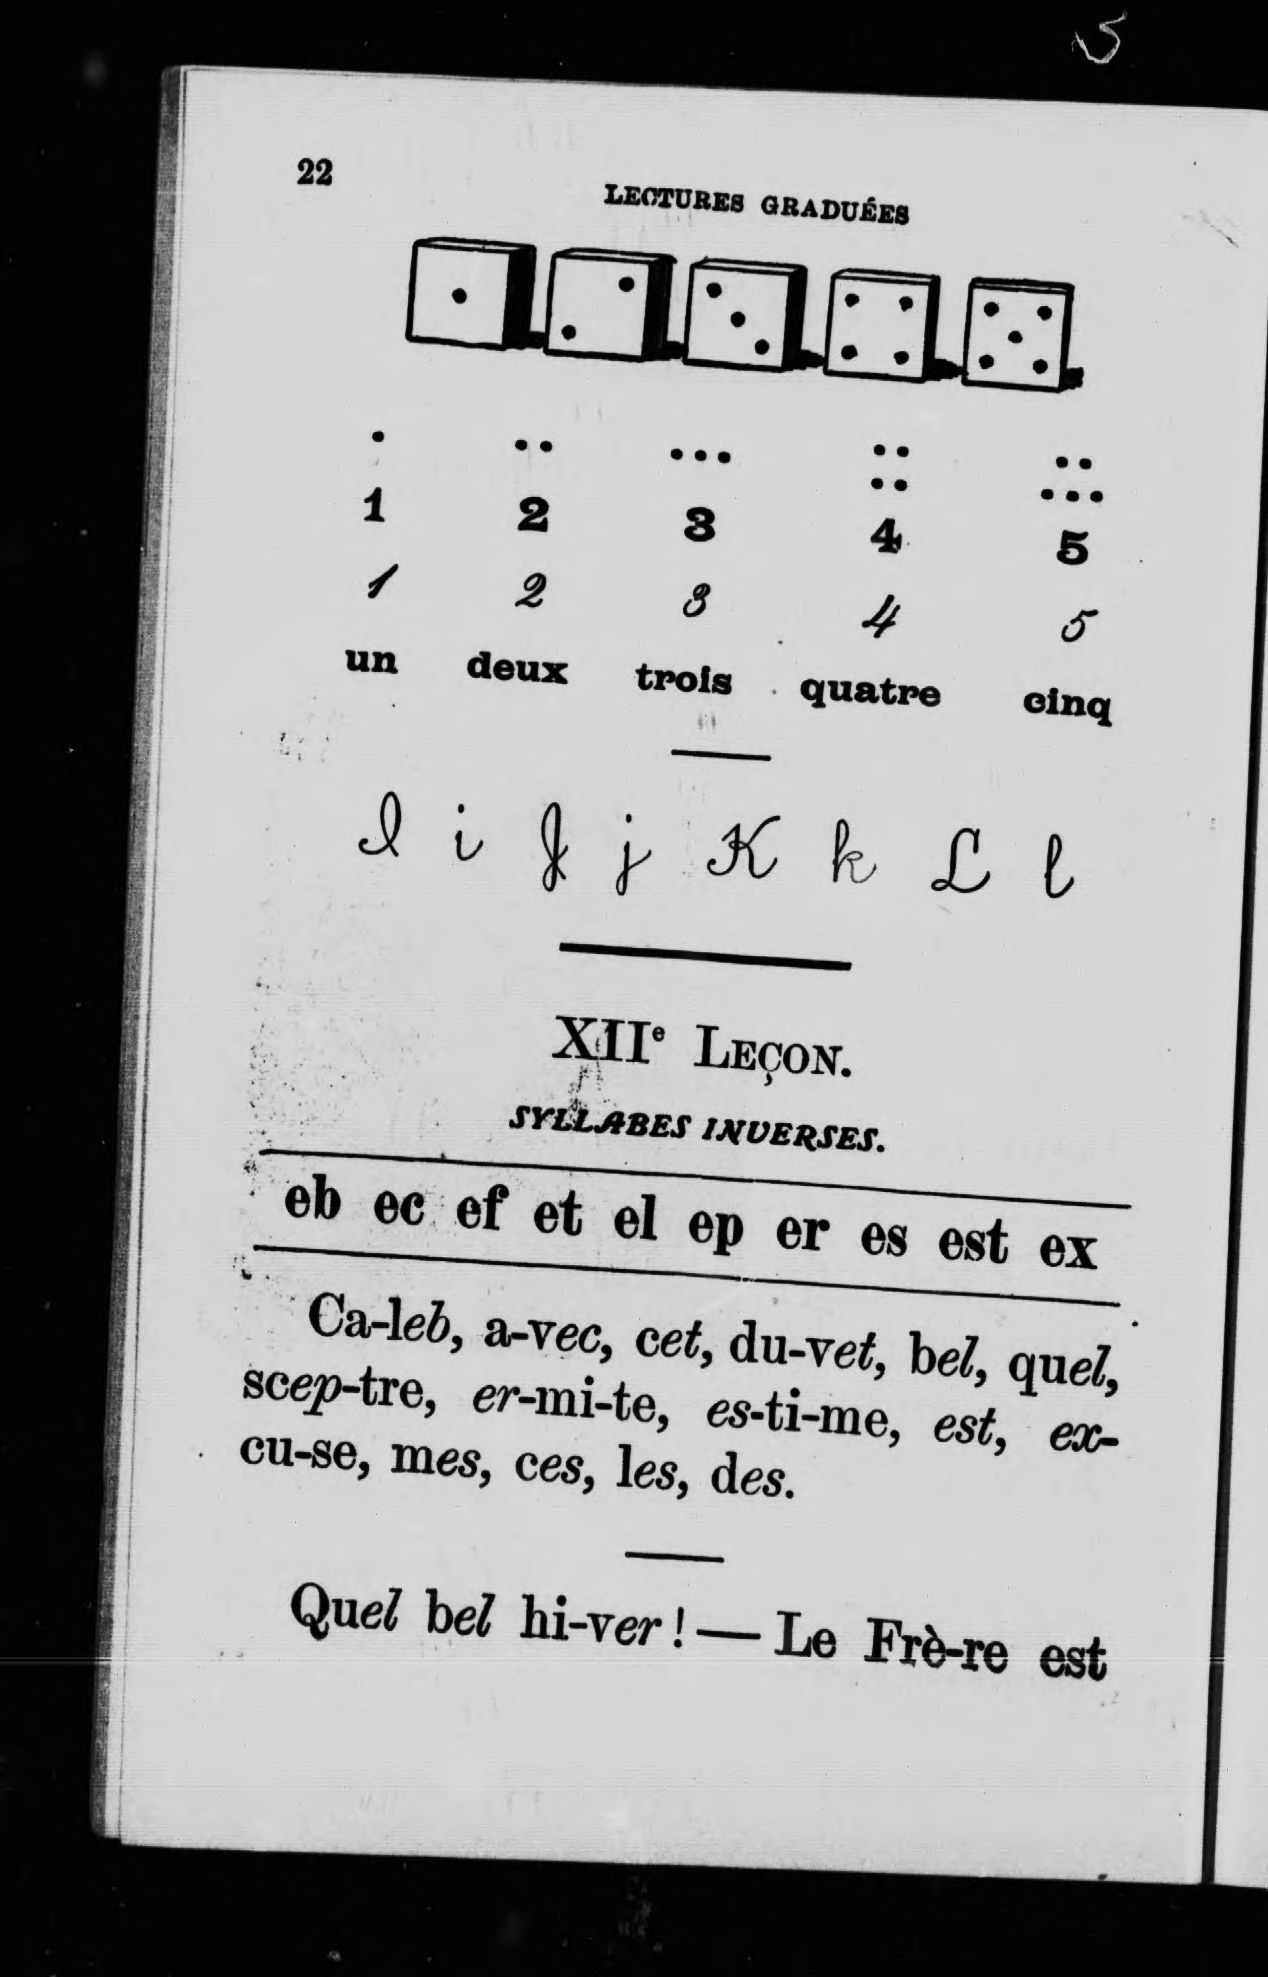 5
22
LECTURES GRADUÉES
1 2 3 4 5
1 2 3 4 5
un deux trois quatre cinq
I i J j K k L l
XIIe LEÇON.
SYLLABES INVERSES.
eb ec ef et el ep er es est ex
Ca-leb, a-vec, cet, du-vet, bel, quel,
scep-tre, er-mi-te, es-ti-me, est, ex-
cu-se, mes, ces, les, des.
Quel bel hi-ver ! — Le Frè-re est